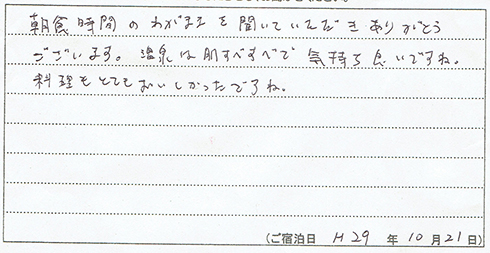 朝食時間のわがままを聞いていただきありがとう
ございます。温泉は肌すべすべで気持ち良いですね。
料理もとてもおいしかったですね。
(ご宿泊日 H29 年 10 月 21 日)